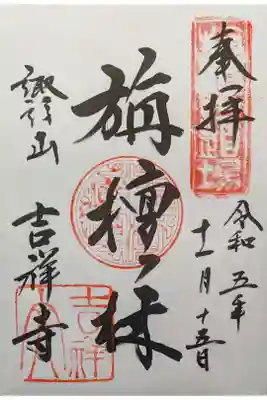 奉拝
令和五年
十一月十五日
旃檀林
諏訪山
吉祥寺